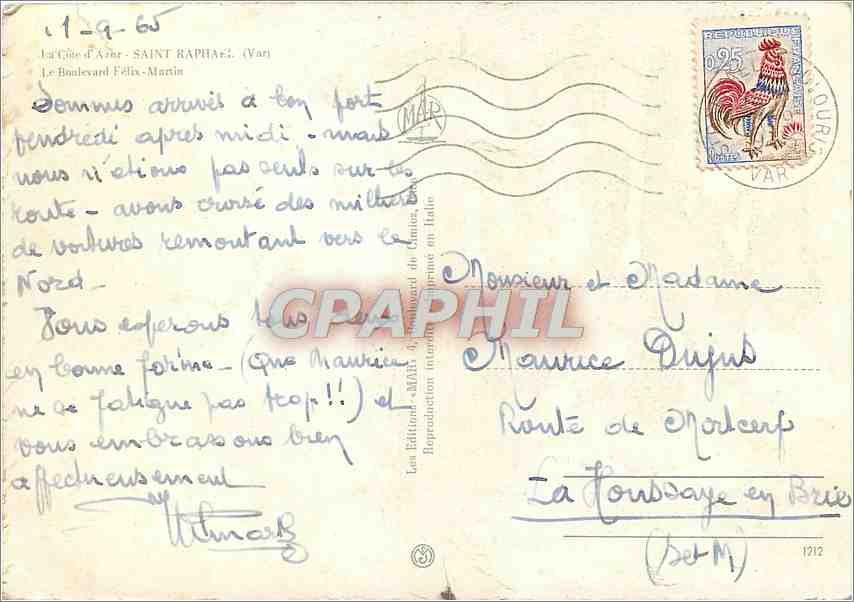 11-9-65
La Côte d'Azur - SAINT RAPHAEL (Var)
Le Boulevard Félix-Martin
Sommes arrivés à bon port
vendredi après midi - mais
nous n'étions pas seuls sur la
route - avons croisé des milliers
de voitures remontant vers le
Nord -
Vous espérons tous deux
en bonne forme - (Que Maurice
ne se fatigue pas trop !!) et
vous embrassons bien
affectueusement
MAR
REPUBLIQUE FRANÇAISE
0,25
POSTES
VAR
Les Editions «MAR» 4, Boulevard de Cimiez, Nice
Reproduction interdite Imprimé en Italie
CPAPHIL
Monsieur et Madame
Maurice Dujus
Route de Mortcerf
La Houssaye en Brie
(S et M)
1212